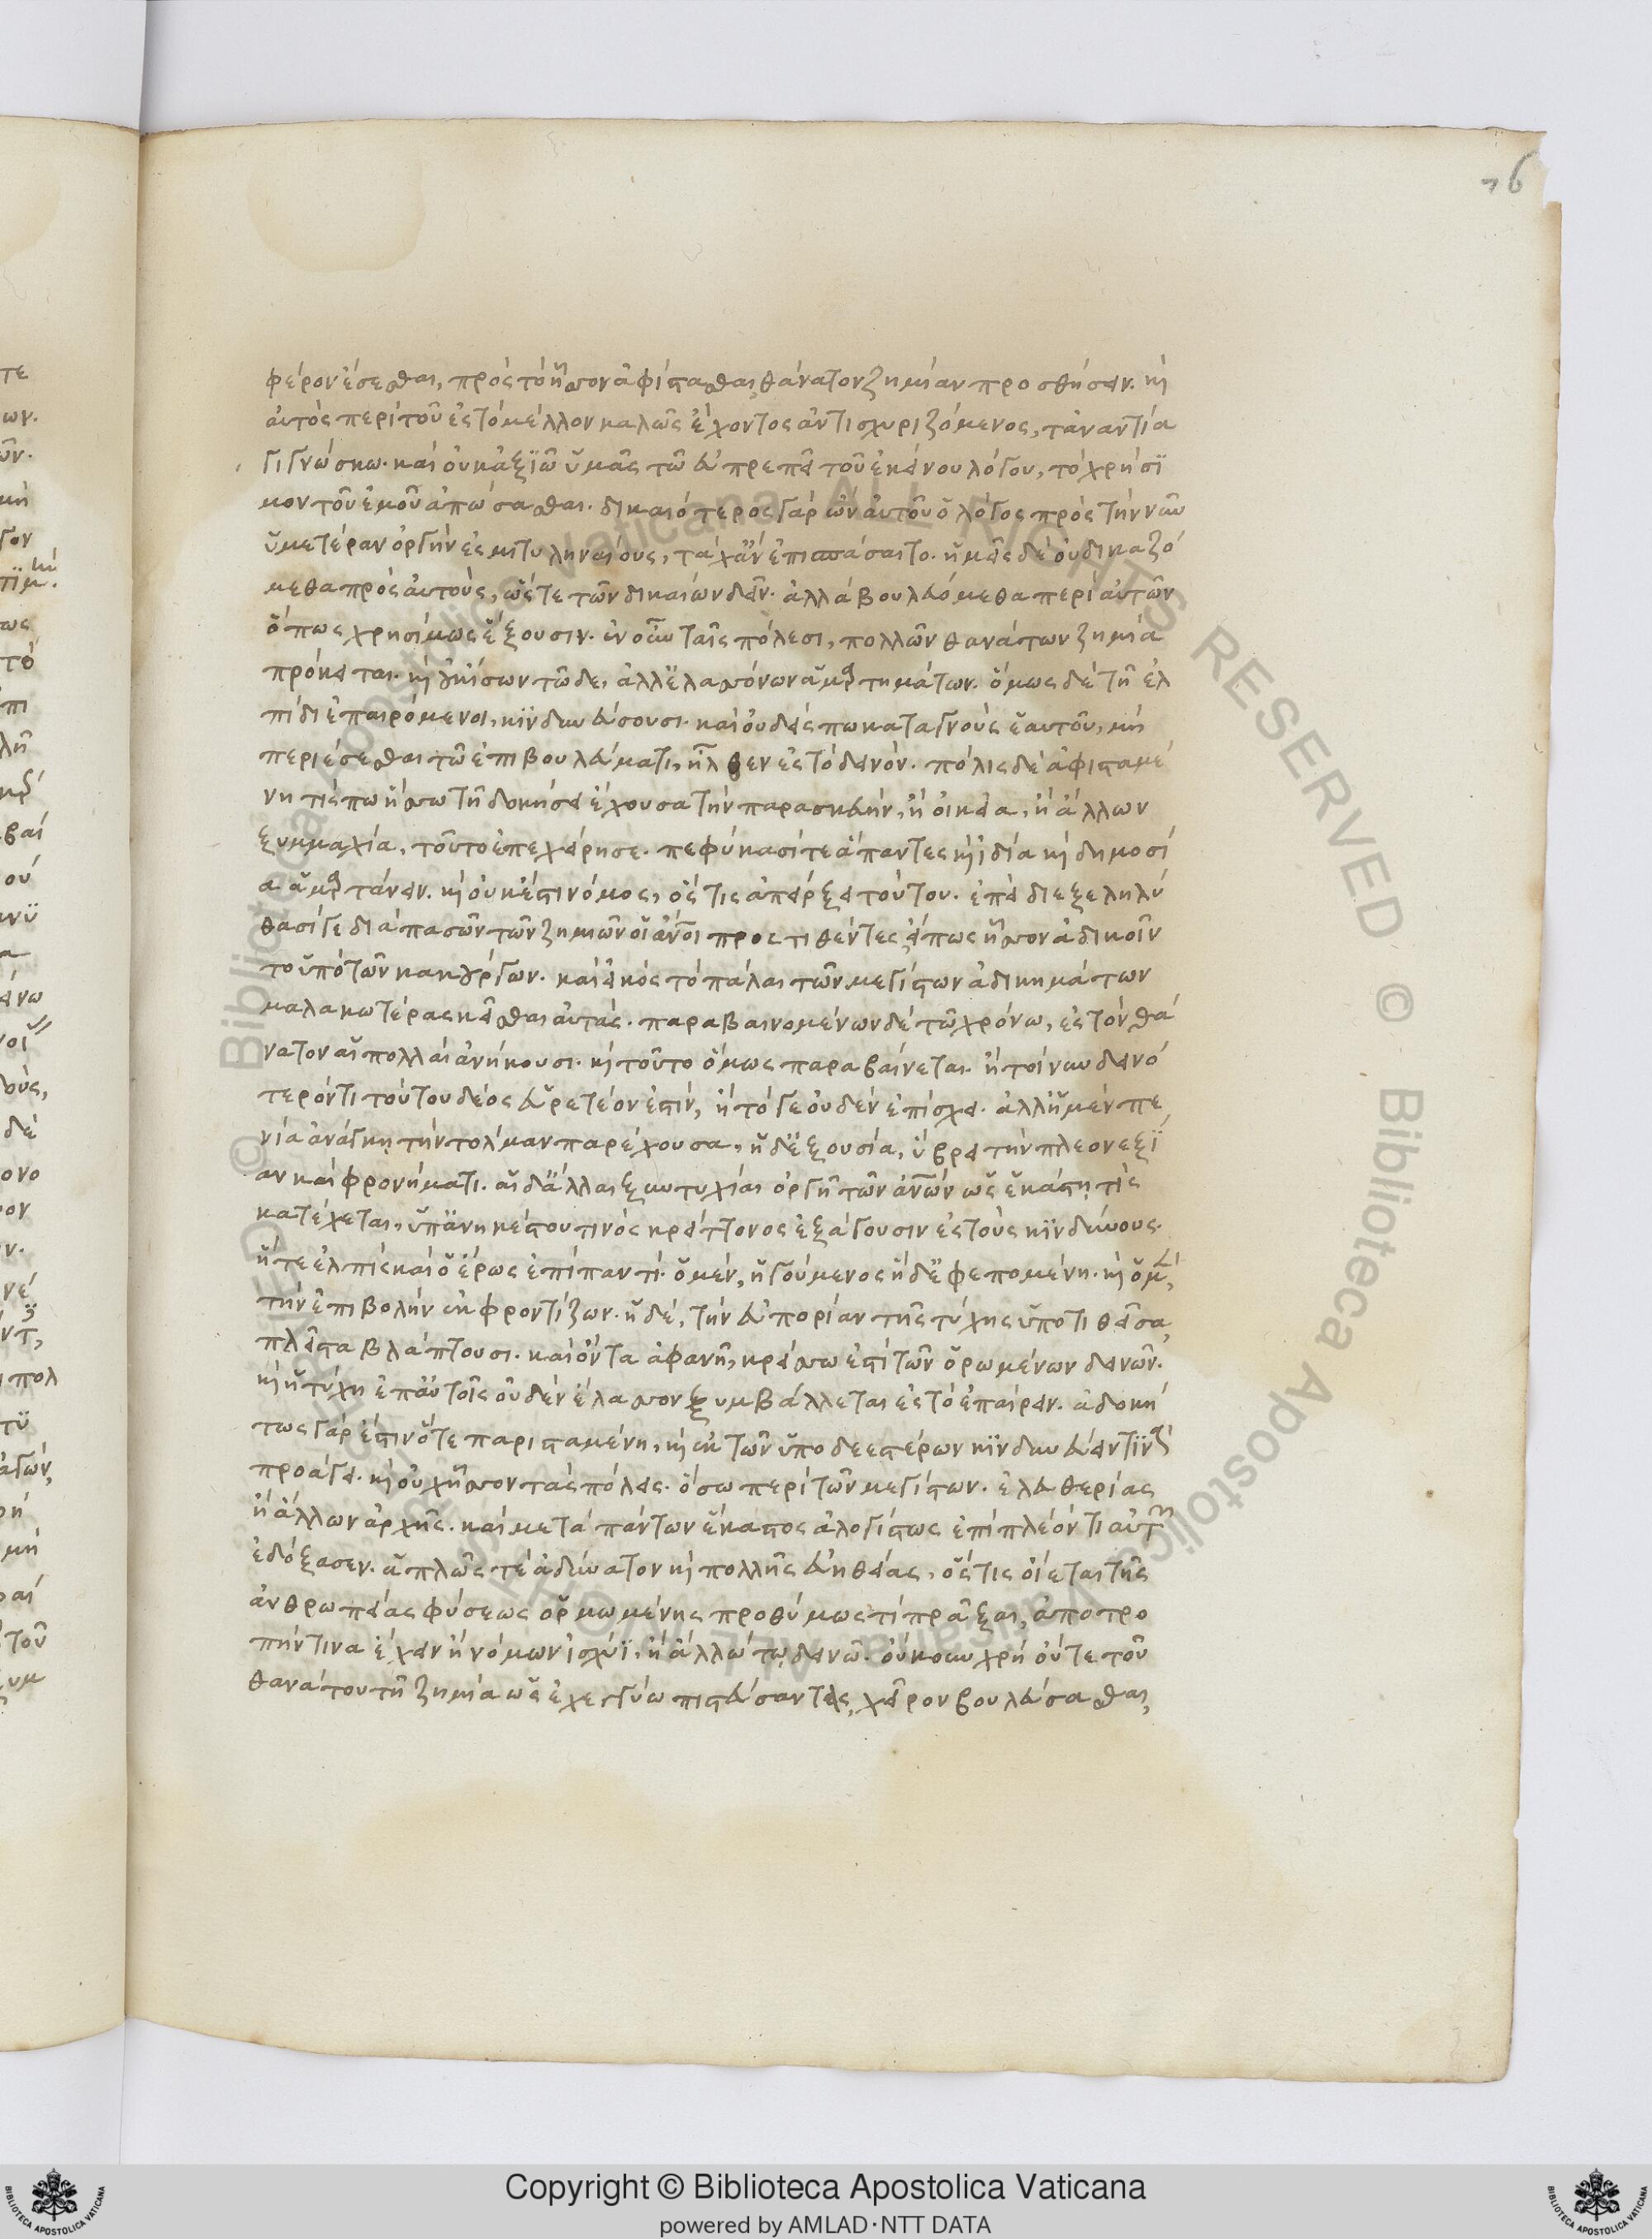 76
φέρον ἔσεσθαι, πρὸς τὸ ἧσσον ἀφίστασθαι, θάνατον ζημίαν προσθήσειν. καὶ
αὐτὸς περὶ τοῦ ἐς τὸ μέλλον καλῶς ἔχοντος ἀντισχυριζόμενος, τἀναντία
γιγνώσκω. καὶ οὐκ ἀξιῶ ὑμᾶς τῶ εὐπρεπεῖ τοῦ ἐκείνου λόγου, τὸ χρήσι
μον τοῦ ἐμοῦ ἀπώσασθαι. δικαιότερος γὰρ ὢν αὐτοῦ ὁ λόγος πρὸς τὴν νῦν
ὑμετέραν ὀργὴν ἐς μιτυληναίους, τάχ' ἂν ἐπισπάσαιτο. ἡμεῖς δὲ οὐ δικαζό
μεθα πρὸς αὐτοὺς, ὥστε τῶν δικαίων δεῖν. ἀλλὰ βουλευόμεθα περὶ αὐτῶν
ὅπως χρησίμως ἕξουσιν. ἐν οὖν ταῖς πόλεσι, πολλῶν θανάτων ζημία
πρόκειται. καὶ οὐκ ἴσων τῶδε, ἀλλ' ἐλασσόνων ἁμαρτημάτων. ὅμως δὲ τῆ ἐλ
πίδι ἐπαιρόμενοι, κινδυνεύουσι. καὶ οὐδείς πω καταγνοὺς ἑαυτοῦ, μὴ
περιέσεσθαι τῶ ἐπιβουλεύματι, ἦλθεν ἐς τὸ δεινόν. πόλις δὲ ἀφισταμέ
νη τίς πω ἥσσω τῆ δοκήσει ἔχουσα τὴν παρασκευήν, ἢ οἰκεία, ἢ ἄλλων
ξυμμαχία, τοῦτο ἐπεχείρησε. πεφύκασί τε ἅπαντες καὶ ἰδία καὶ δημοσί
α ἁμαρτάνειν. καὶ οὐκ ἔστι νόμος, ὅστις ἀπείρξει τούτου. ἐπεὶ διεξεληλύ
θασί γε διὰ πασῶν τῶν ζημιῶν οἱ ἄνοι προστιθέντες, εἴπως ἧσσον ἀδικοῖν
το ὑπὸ τῶν κακούργων. καὶ εἰκὸς τὸ πάλαι τῶν μεγίστων ἀδικημάτων
μαλακωτέρας κεῖσθαι αὐτάς. παραβαινομένων δὲ τῶ χρόνω, ἐς τὸν θά
νατον αἱ πολλαὶ ἀνήκουσι. καὶ τοῦτο ὅμως παραβαίνεται. ἢ τοίνυν δεινό
τερόν τι τούτου δέος εὑρετέον ἐστίν, ἢ τόγε οὐδὲν ἐπίσχει. ἀλλ' ἡ μὲν πε
νία ἀνάγκη τὴν τόλμαν παρέχουσα, ἡ δ' ἐξουσία, ὕβρει τὴν πλεονεξί
αν καὶ φρονήματι. αἱ δ' ἄλλαι ξυντυχίαι ὀργῆ τῶν ἀνων ὡς ἑκάστη τὶς
κατέχεται, ὑπ' ἀνηκέστου τινὸς κρείττονος ἐξάγουσιν ἐς τοὺς κινδύνους.
ἥτε ἐλπὶς καὶ ὁ ἔρως ἐπὶ παντί. ὁ μὲν, ἡγούμενος ἡ δ' ἐφεπομένη. καὶ ὁ μὲν,
τὴν ἐπιβολὴν ἐκφροντίζων. ἡ δὲ, τὴν εὐπορίαν τῆς τύχης ὑποτιθεῖσα,
πλεῖστα βλάπτουσι. καὶ ὄντα ἀφανῆ, κρείσσω ἐστὶ τῶν ὁρωμένων δεινῶν.
καὶ ἡ τύχη ἐπ' αὐτοῖς οὐδὲν ἔλασσον ξυμβάλλεται ἐς τὸ ἐπαίρειν. ἀδοκή
τως γὰρ ἔστιν ὅτε παρισταμένη, καὶ ἐκ τῶν ὑποδεεστέρων κινδυνεύειν τινὰ
προάγει. καὶ οὐχ ἧσσον τὰς πόλεις. ὅσω περὶ τῶν μεγίστων. ἐλευθερίας
ἢ ἄλλων ἀρχῆς. καὶ μετὰ πάντων ἕκαστος ἀλογίστως ἐπὶ πλέον τι αὐτὸν
ἐδόξασεν. ἁπλῶς τὲ ἀδύνατον καὶ πολλῆς εὐηθείας, ὅστις οἴεται τῆς
ἀνθρωπείας φύσεως ὁρμωμένης προθύμως τὶ πρᾶξαι, ἀποτρο
πήν τινα ἔχειν ἢ νόμων ἰσχύϊ, ἢ ἄλλω τω δεινῶ. οὔκουν χρὴ οὔτε τοῦ
θανάτου τῆ ζημία ὡς ἐχεγγύω πιστεύσαντες, χεῖρον βουλεύσασθαι,
© Biblioteca Apostolica Vaticana ALL RIGHTS RESERVED
Copyright © Biblioteca Apostolica Vaticana
powered by AMLAD·NTT DATA
BIBLIOTECA APOSTOLICA VATICANA